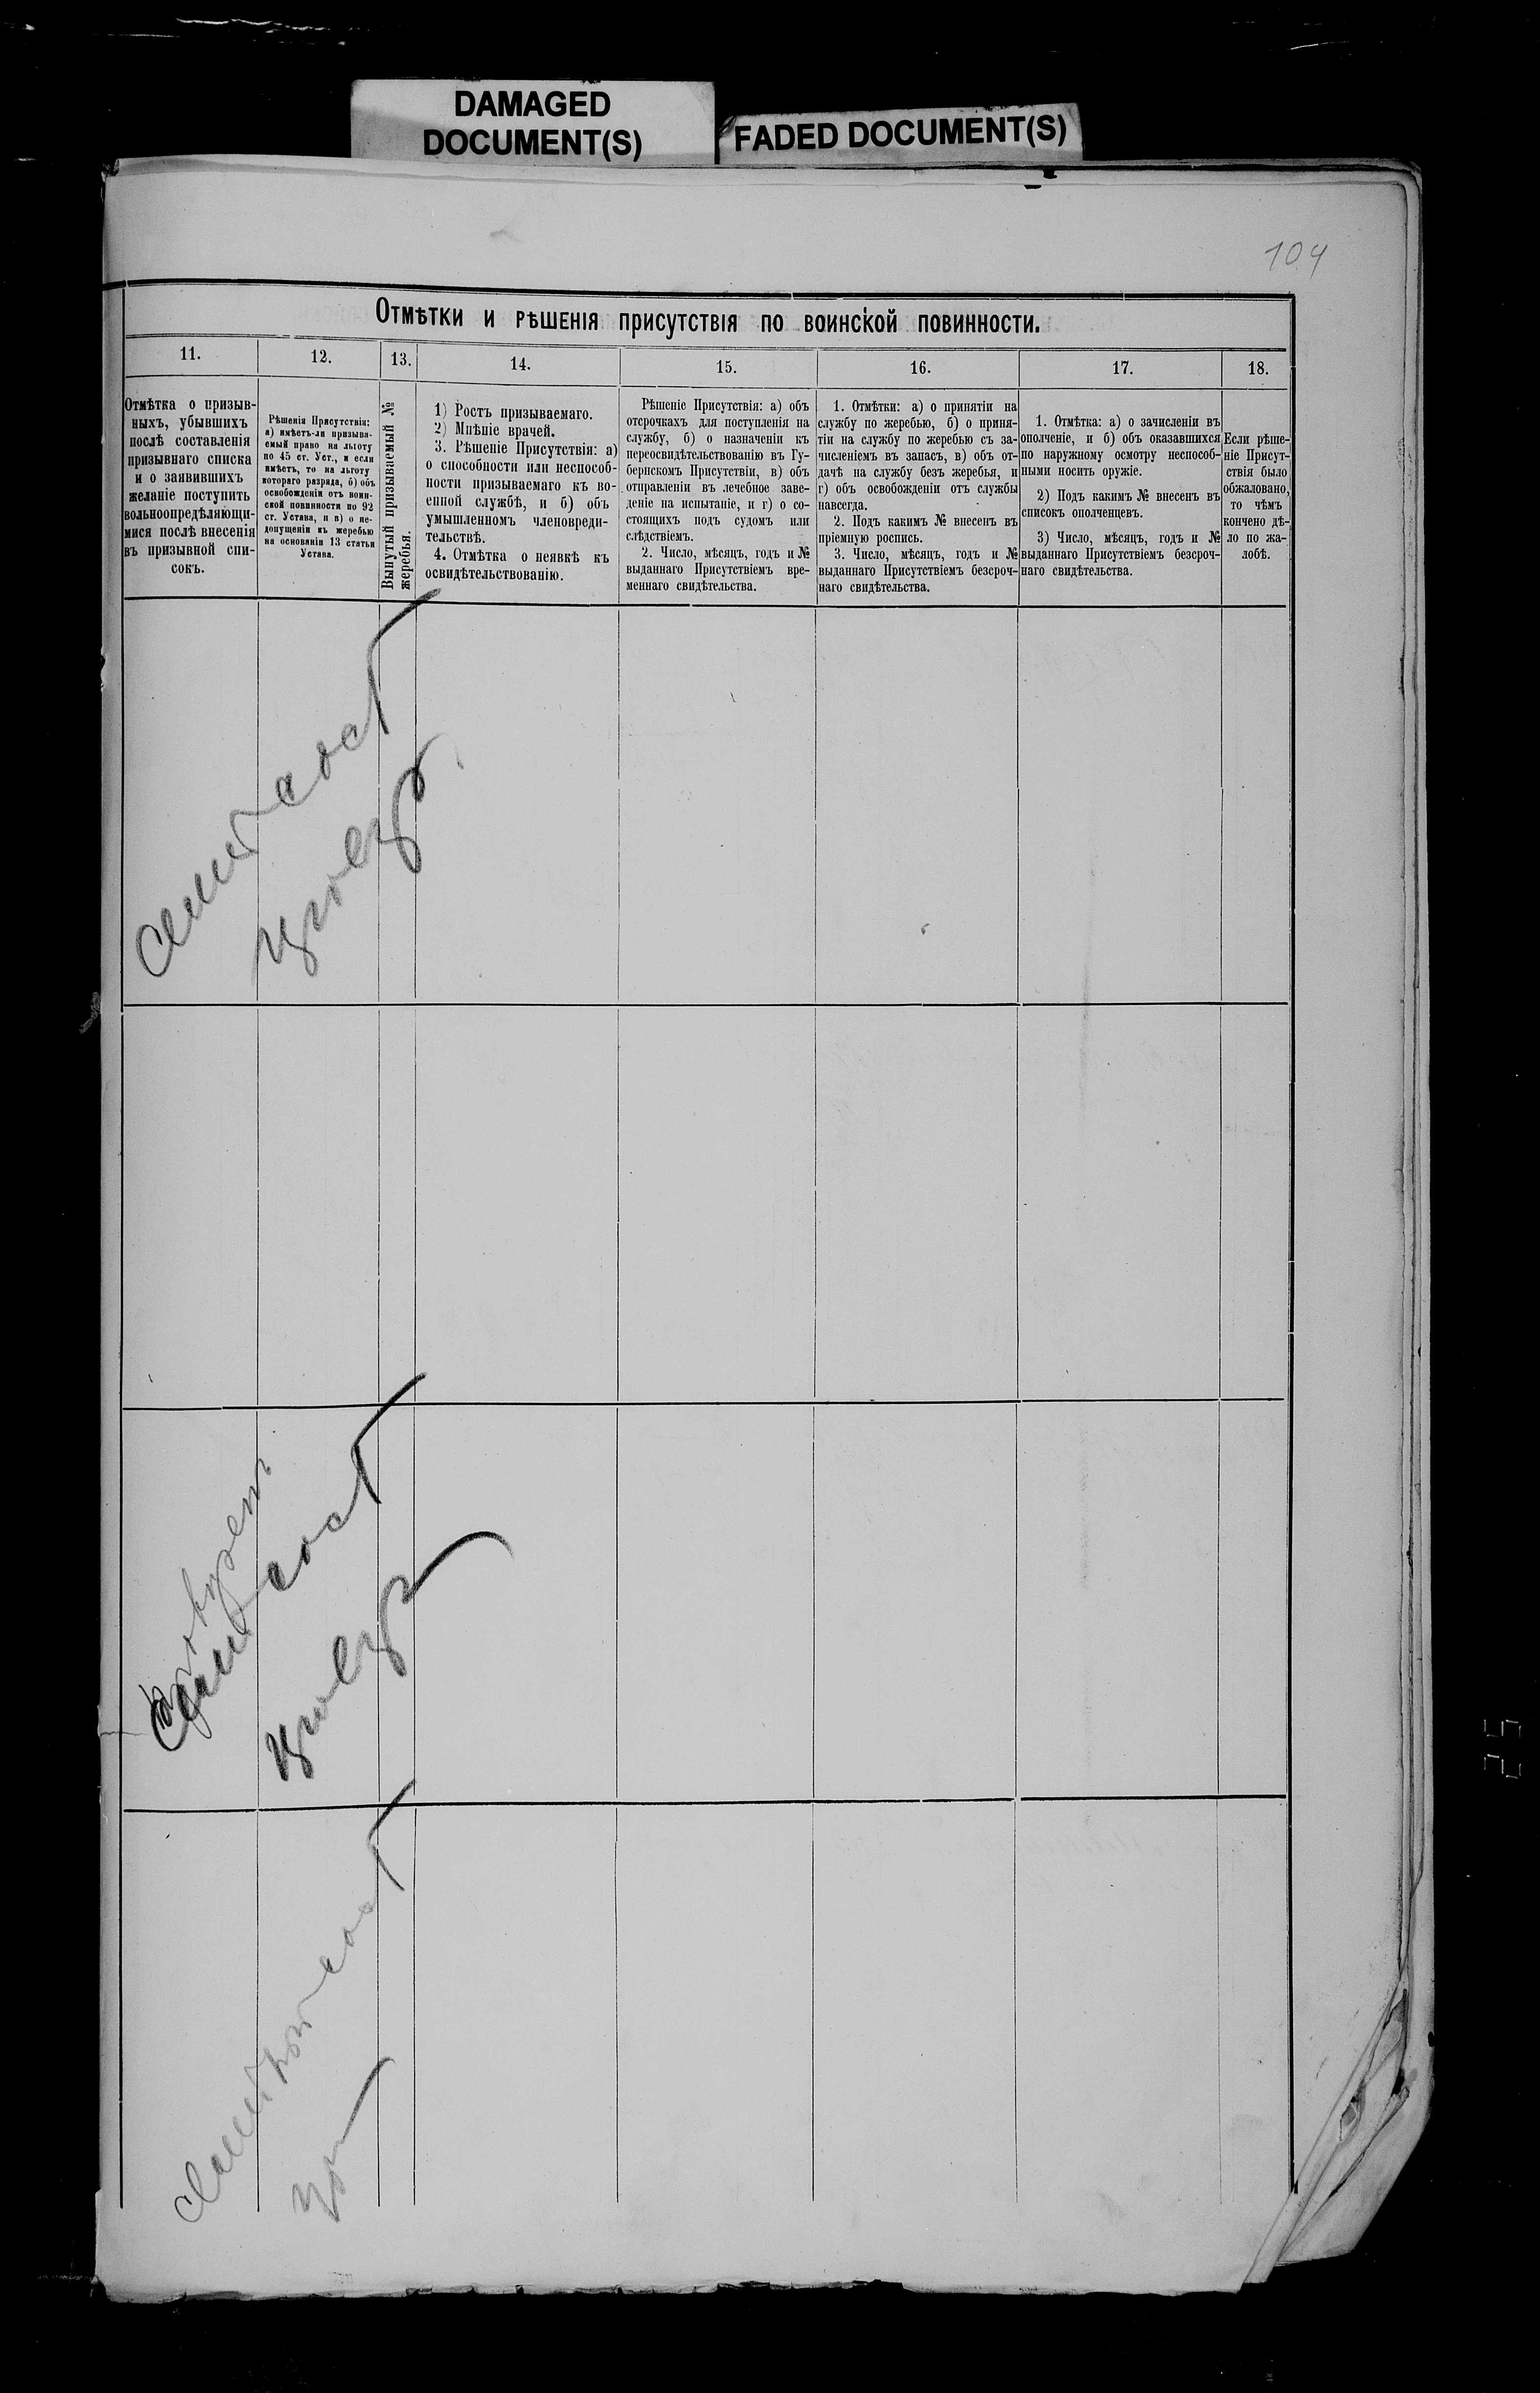 DAMAGED
DOCUMENT(S)
FADED DOCUMENT(S)
104
Отмѣтки и рѣшенія присутствія по воинской повинности.
11.
12.
13.
14.
15.
16.
17.
18.
Отмѣтка о призыв-
ныхъ, убывшихъ
послѣ составленія
призывнаго списка
и о заявившихъ
желаніе поступить
вольноопредѣляющи-
мися послѣ внесенія
въ призывной спи-
сокъ.
Рѣшенія Присутствія:
а) имѣетъ-ли призыва-
емый право на льготу
по 45 ст. Уст., и если
имѣетъ, то на льготу
котораго разряда, б) объ
освобожденіи отъ воин-
ской повинности по 92
ст. Устава, и в) о не-
допущеніи къ жеребью
на основаніи 13 статьи
Устава.
Вынутый призываемый №
жеребья.
1) Ростъ призываемаго.
2) Мнѣніе врачей.
3. Рѣшеніе Присутствія: а)
о способности или неспособ-
ности призываемаго къ во-
енной службѣ, и б) объ
умышленномъ членовреди-
тельствѣ.
4. Отмѣтка о неявкѣ къ
освидѣтельствованію.
Рѣшеніе Присутствія: а) объ
отсрочкахъ для поступленія на
службу, б) о назначеніи къ
переосвидѣтельствованію въ Гу-
бернскомъ Присутствіи, в) объ
отправленіи въ лечебное заве-
деніе на испытаніе, и г) о со-
стоящихъ подъ судомъ или
слѣдствіемъ.
2. Число, мѣсяцъ, годъ и №
выданнаго Присутствіемъ вре-
меннаго свидѣтельства.
1. Отмѣтки: а) о принятіи на
службу по жеребью, б) о приня-
тіи на службу по жеребью съ за-
численіемъ въ запасъ, в) объ от-
дачѣ на службу безъ жеребья, и
г) объ освобожденіи отъ службы
навсегда.
2. Подъ какимъ № внесенъ въ
пріемную роспись.
3. Число, мѣсяцъ, годъ и №
выданнаго Присутствіемъ безсроч-
наго свидѣтельства.
1. Отмѣтка: а) о зачисленіи въ
ополченіе, и б) объ оказавшихся
по наружному осмотру неспособ-
ными носить оружіе.
2) Подъ какимъ № внесенъ въ
списокъ ополченцевъ.
3) Число, мѣсяцъ, годъ и №
выданнаго Присутствіемъ безсроч-
наго свидѣтельства.
Если рѣше-
ніе Присут-
ствія было
обжаловано,
то чѣмъ
кончено дѣ-
ло по жа-
лобѣ.
25